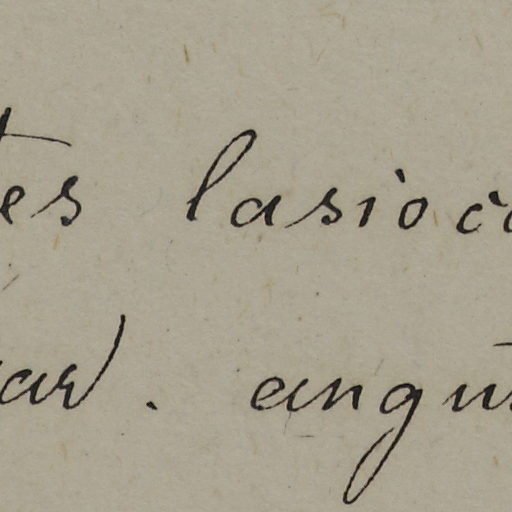 tes lasioc
ar. angu